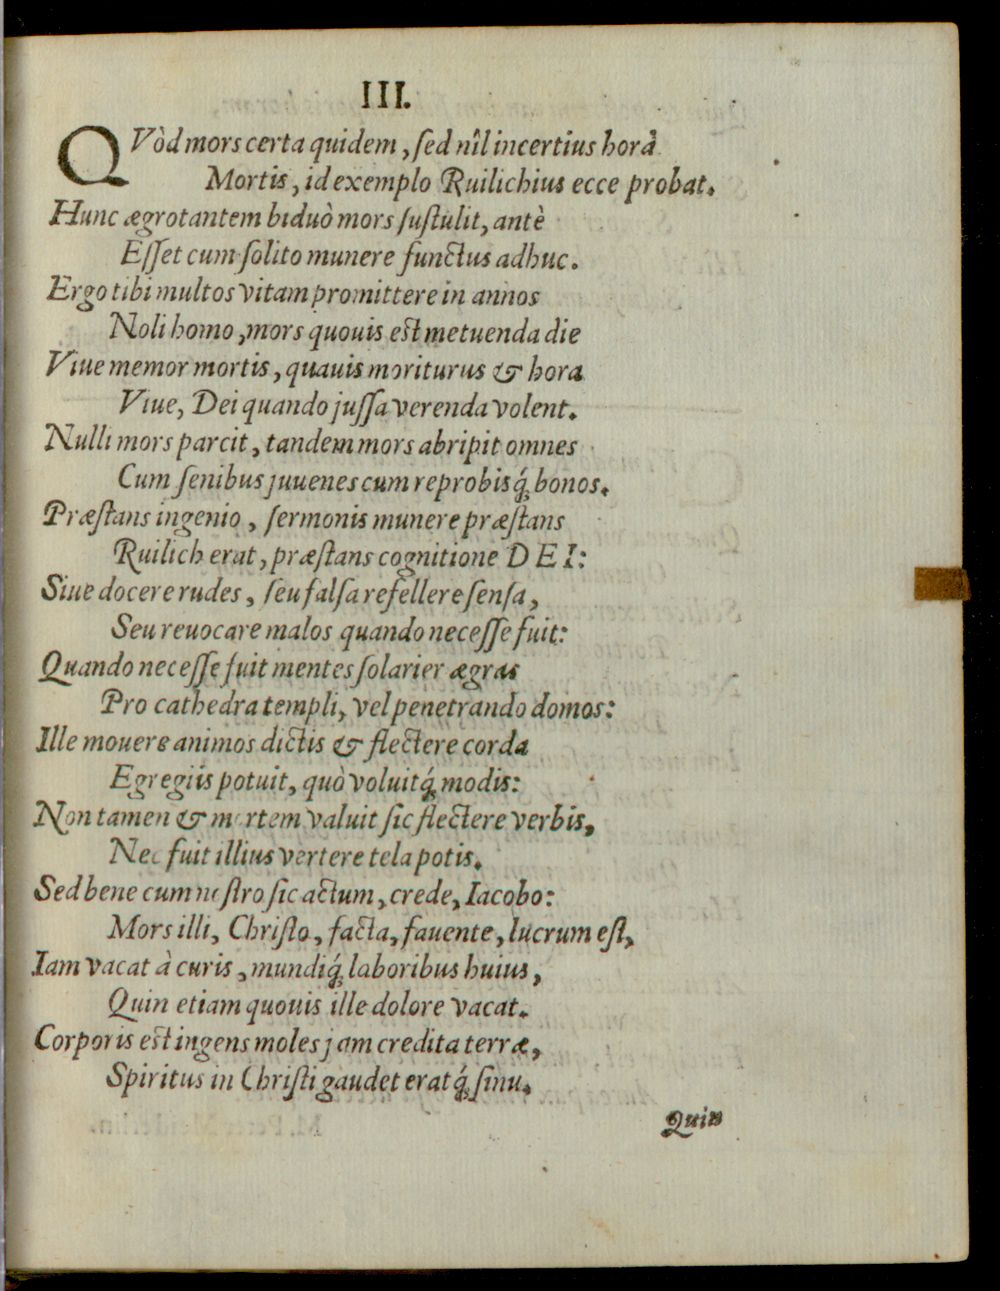 III.
QVòd mors certa quidem, sed nîl incertius horâ
Mortis, id exemplo Ruilichius ecce probat.
Hunc ægrotantem biduò mors sustulit, antè
Esset cum solito munere functus adhuc.
Ergo tibi multos vitam promittere in annos
Noli homo, mors quouis est metuenda die
Viue memor mortis, quauis moriturus & hora
Viue, Dei quando jussa verenda volent.
Nulli mors parcit, tandem mors abripit omnes
Cum senibus juuenes cum reprobisq́; bonos.
Præstans ingenio, sermonis munere præstans
Ruilich erat, præstans cognitione DEI:
Siue docere rudes, seu falsa refellere sensa,
Seu reuocare malos quando necesse fuit:
Quando necesse fuit mentes solarier ægras
Pro cathedra templi, vel penetrando domos:
Ille mouere animos dictis & flectere corda
Egregiis potuit, quò voluitq́; modis:
Non tamen & mortem valuit sic flectere verbis,
Nec fuit illius vertere tela potis.
Sed bene cum nostro sic actum, crede, Iacobo:
Mors illi, Christo, facta, fauente, lucrum est,
Iam vacat à curis, mundiq́; laboribus huius,
Quin etiam quouis ille dolore vacat.
Corporis est ingens moles jam credita terræ,
Spiritus in Christi gaudet eratq́; sinu.
Quin